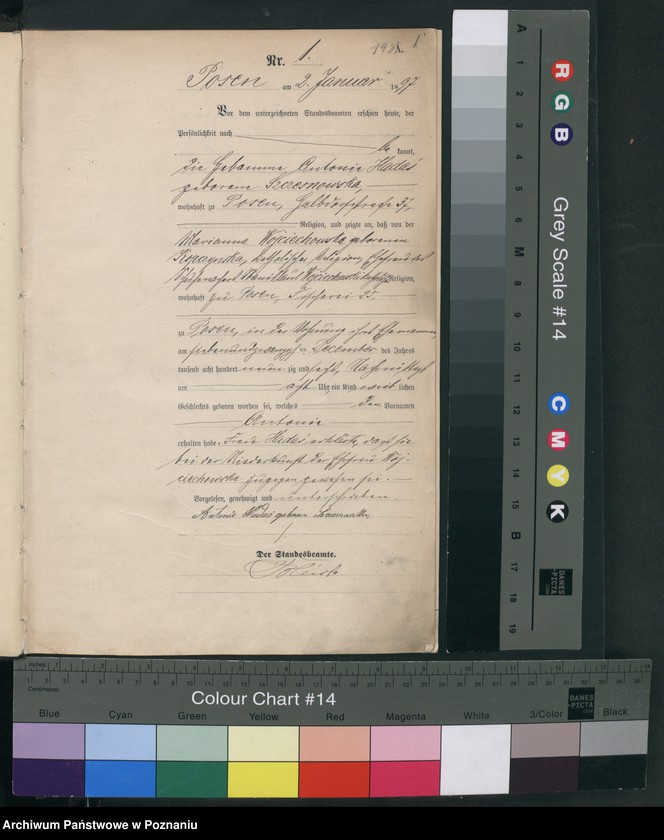 Nr. 1.
Posen am 2. Januar 1897
Vor dem unterzeichneten Standesbeamten erschien heute, der
Persönlichkeit nach
be kannt,
die Hebamme Antonie Hudas
geborene Szczesnowska,
wohnhaft zu Posen, 37,
Religion, und zeigte an, daß von der
Marianna Wojciechowska, geborenen
katholischer Religion, Ehefrau des
Stanislaus Wojciechowski Religion,
wohnhaft zu Posen, Fischerei 25.
zu Posen, in der Wohnung ihres Ehemannes,
am siebenundzwanzigsten Dezember des Jahres
tausend acht hundert neun zig und sechs, Nachmittags
um acht Uhr ein Kind weib lichen
Geschlechts geboren worden sei, welches den Vornamen
Antonie
erhalten habe. Frau Hudas erklärte, daß sie
bei der Niederkunft der Ehefrau Woj-
ciechowska zugegen gewesen sei.
Vorgelesen, genehmigt und unterschrieben.
Antonie Hudas geborene
Der Standesbeamte.
A
1
2
3
4
5
6
M
8
9
10
11
12
13
14
15
B
17
18
19
R
G
B
Grey Scale #14
C
M
Y
K
DANES
-PICTA
.COM
Inches
Centimetres
Colour Chart #14
DANES
-PICTA
.COM
Blue
Cyan
Green
Yellow
Red
Magenta
White
3/Color
Black
Archiwum Państwowe w Poznaniu